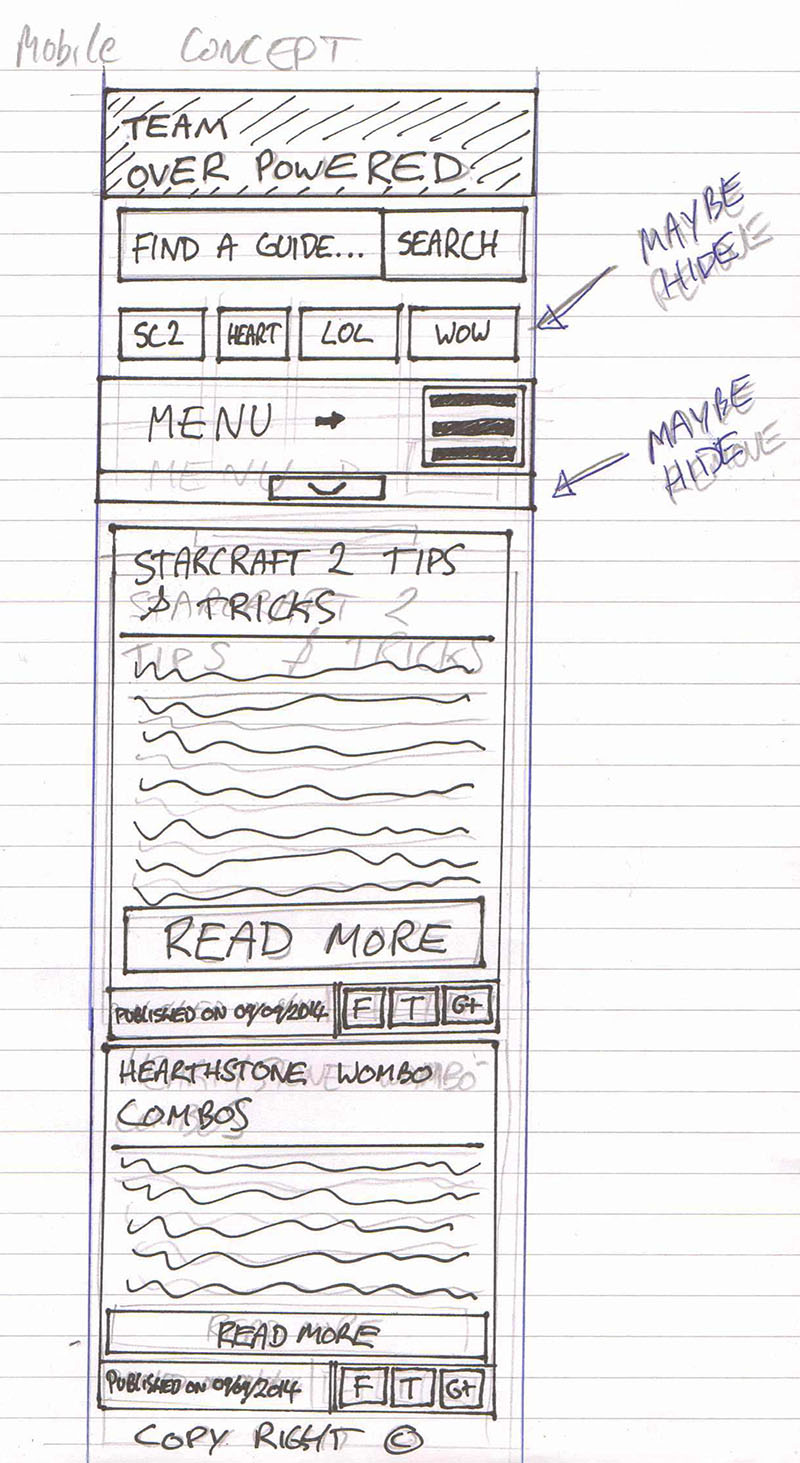 Mobile CONCEPT
TEAM
OVER POWERED
FIND A GUIDE... SEARCH
MAYBE
HIDE
SC2 HEART LOL WOW
MENU
MAYBE
HIDE
STARCRAFT 2 TIPS
& TRICKS
READ MORE
PUBLISHED ON 09/09/2014 F T G+
HEARTHSTONE WOMBO
COMBOS
READ MORE
PUBLISHED ON 09/09/2014 F T G+
COPY RIGHT ©